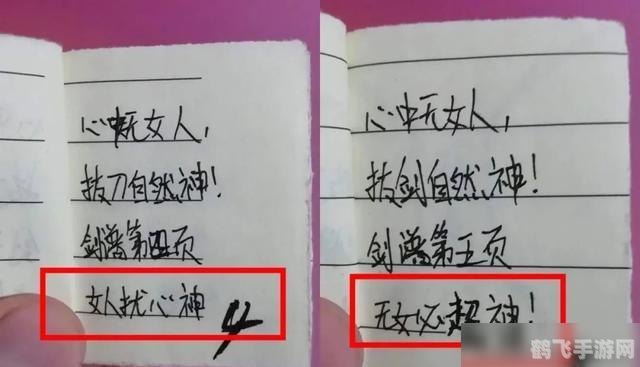 心中无女人,
拔刀自然神!
剑谱第四页
女人扰心神
4
心中无女人,
拔剑自然神!
剑谱第五页
无女必超神!
鹤飞手游网